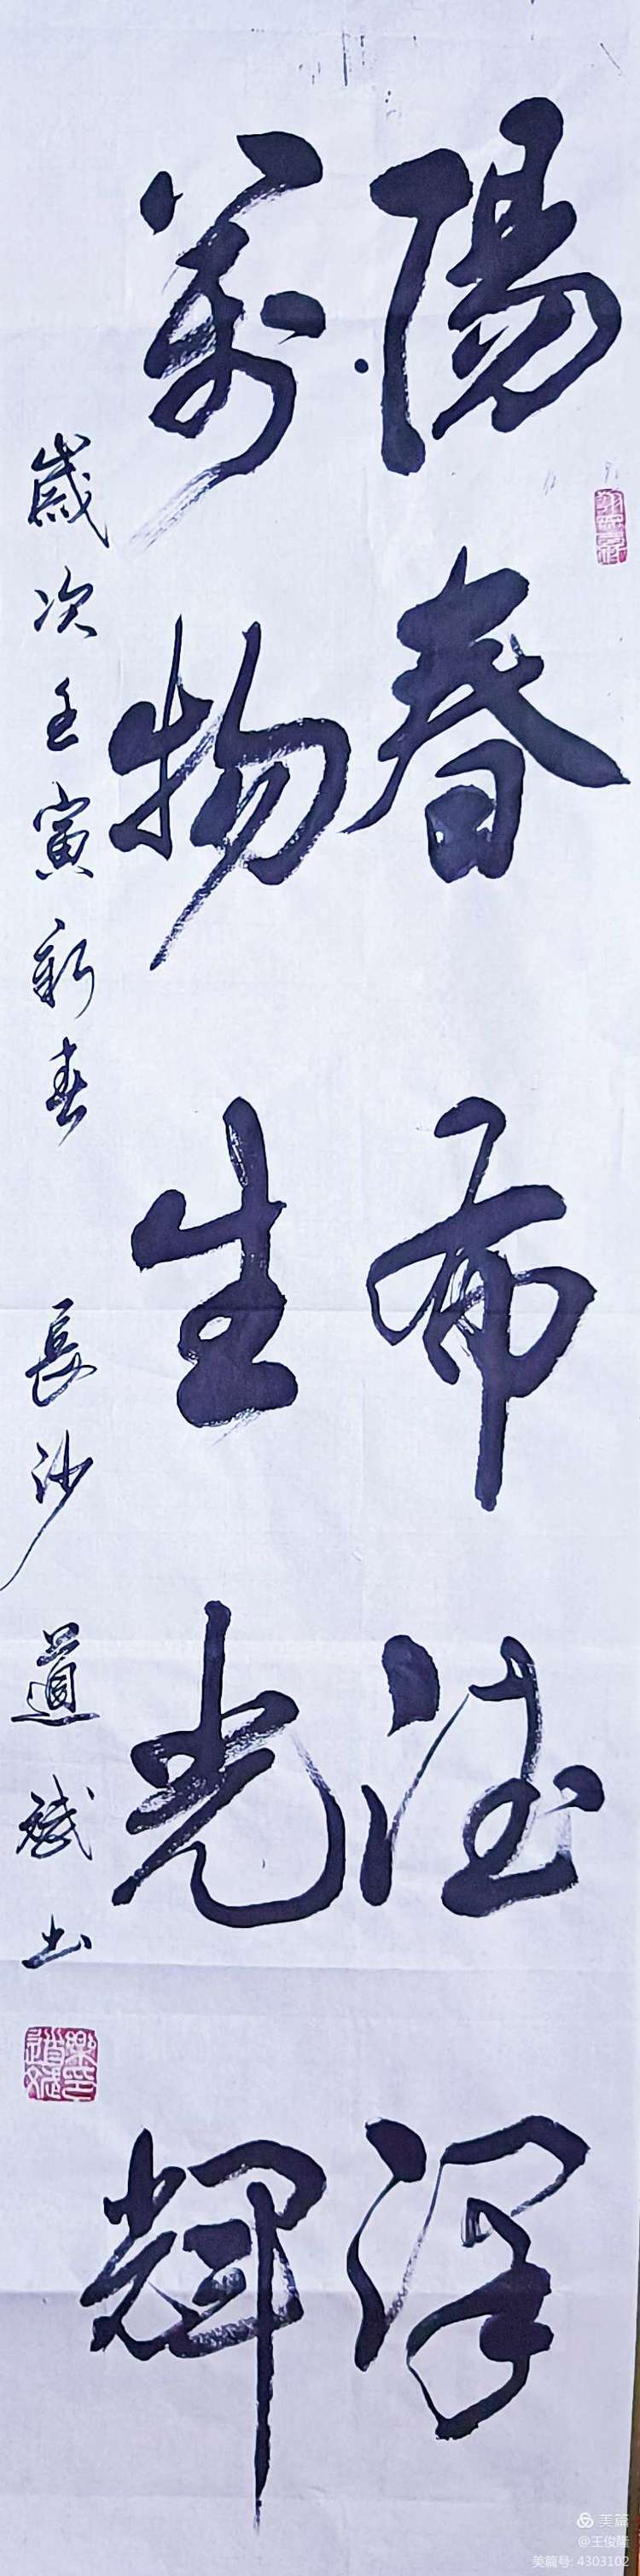 陽春布德澤
萬物生光輝
歲次壬寅新春 長沙 道斌书
美篇
@王俊隆
美篇号: 4303102